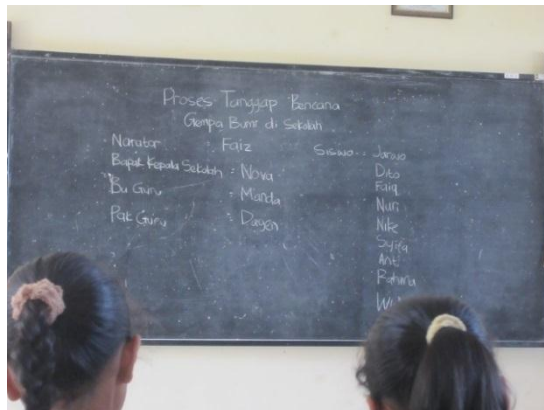 Proses Tanggap Bencana
Gempa Bumi di Sekolah
Narator Faiz
Bapak Kepala Sekolah : Nova
Bu Guru : Manda
Pak Guru : Dayen
Siswa : Jarwo
Dito
Faiq
Nuri
Nike
Syifa
Anti